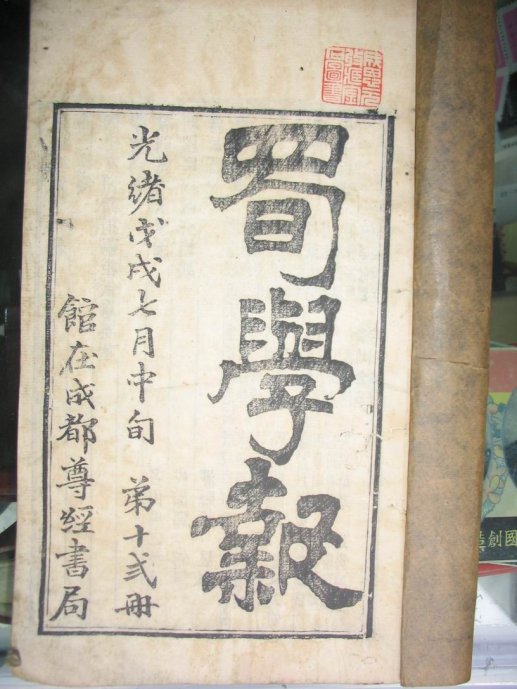 蜀學報
光緒戊戌七月中旬 第十弍冊
館在成都尊經書局
國創造